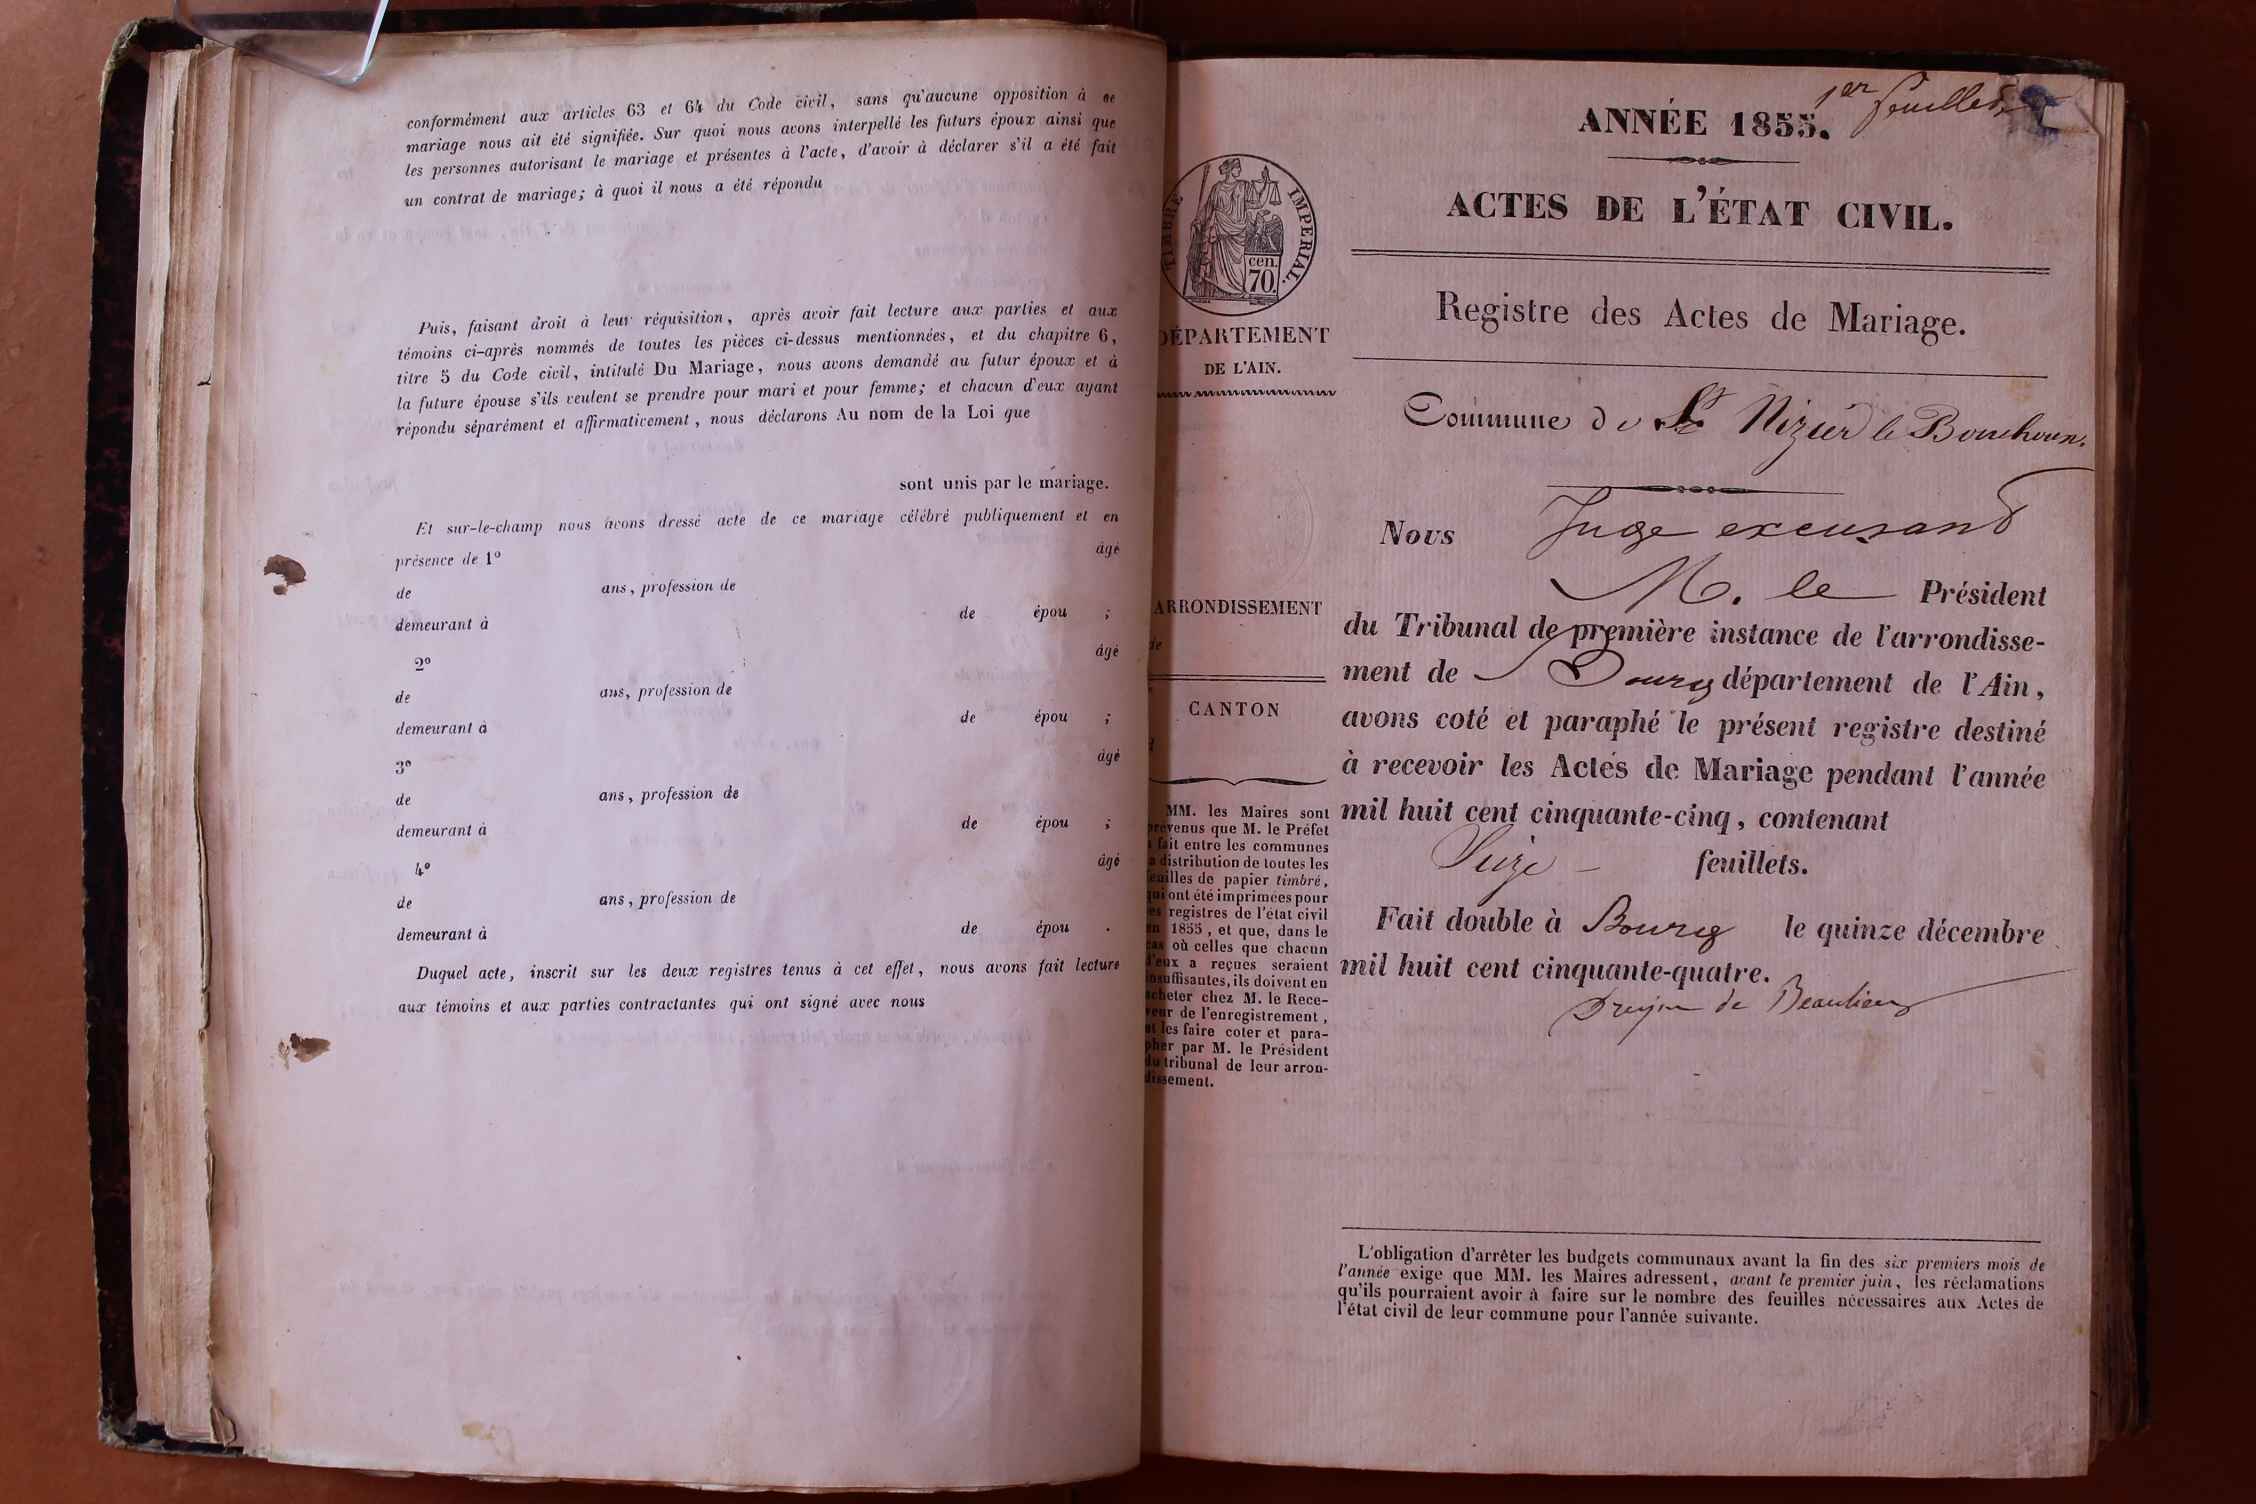 conformément aux articles 63 et 64 du Code civil, sans qu'aucune opposition à ce
mariage nous ait été signifiée. Sur quoi nous avons interpellé les futurs époux ainsi que
les personnes autorisant le mariage et présentes à l'acte, d'avoir à déclarer s'il a été fait
un contrat de mariage; à quoi il nous a été répondu
Puis, faisant droit à leur réquisition, après avoir fait lecture aux parties et aux
témoins ci-après nommés de toutes les pièces ci-dessus mentionnées, et du chapitre 6,
titre 5 du Code civil, intitulé Du Mariage, nous avons demandé au futur époux et à
la future épouse s'ils veulent se prendre pour mari et pour femme; et chacun d'eux ayant
répondu séparément et affirmativement, nous déclarons Au nom de la Loi que
sont unis par le mariage.
Et sur-le-champ nous avons dressé acte de ce mariage célébré publiquement et en
présence de 1° âgé
de ans, profession de
demeurant à de épou ;
2° âgé
de ans, profession de
demeurant à de épou ;
3° âgé
de ans, profession de
demeurant à de épou ;
4° âgé
de ans, profession de
demeurant à de épou .
Duquel acte, inscrit sur les deux registres tenus à cet effet, nous avons fait lecture
aux témoins et aux parties contractantes qui ont signé avec nous
1er feuillet
ANNÉE 1855.
ACTES DE L'ÉTAT CIVIL.
TIMBRE IMPERIAL.
cen.
70.
DÉPARTEMENT
DE L'AIN.
Registre des Actes de Mariage.
Commune de St Nizier le Bouchoux.
ARRONDISSEMENT
de
CANTON
d
MM. les Maires sont
prévenus que M. le Préfet
a fait entre les communes
la distribution de toutes les
feuilles de papier timbré,
qui ont été imprimées pour
les registres de l'état civil
en 1855, et que, dans le
cas où celles que chacun
d'eux a reçues seraient
insuffisantes, ils doivent en
acheter chez M. le Rece-
veur de l'enregistrement,
et les faire coter et para-
pher par M. le Président
du tribunal de leur arron-
dissement.
Nous Juge excusant
M. le Président
du Tribunal de première instance de l'arrondisse-
ment de Bourg département de l'Ain,
avons coté et paraphé le présent registre destiné
à recevoir les Actes de Mariage pendant l'année
mil huit cent cinquante-cinq, contenant
Seize feuillets.
Fait double à Bourg le quinze décembre
mil huit cent cinquante-quatre.
de Beaulieu
L'obligation d'arrêter les budgets communaux avant la fin des six premiers mois de
l'année exige que MM. les Maires adressent, avant le premier juin, les réclamations
qu'ils pourraient avoir à faire sur le nombre des feuilles nécessaires aux Actes de
l'état civil de leur commune pour l'année suivante.